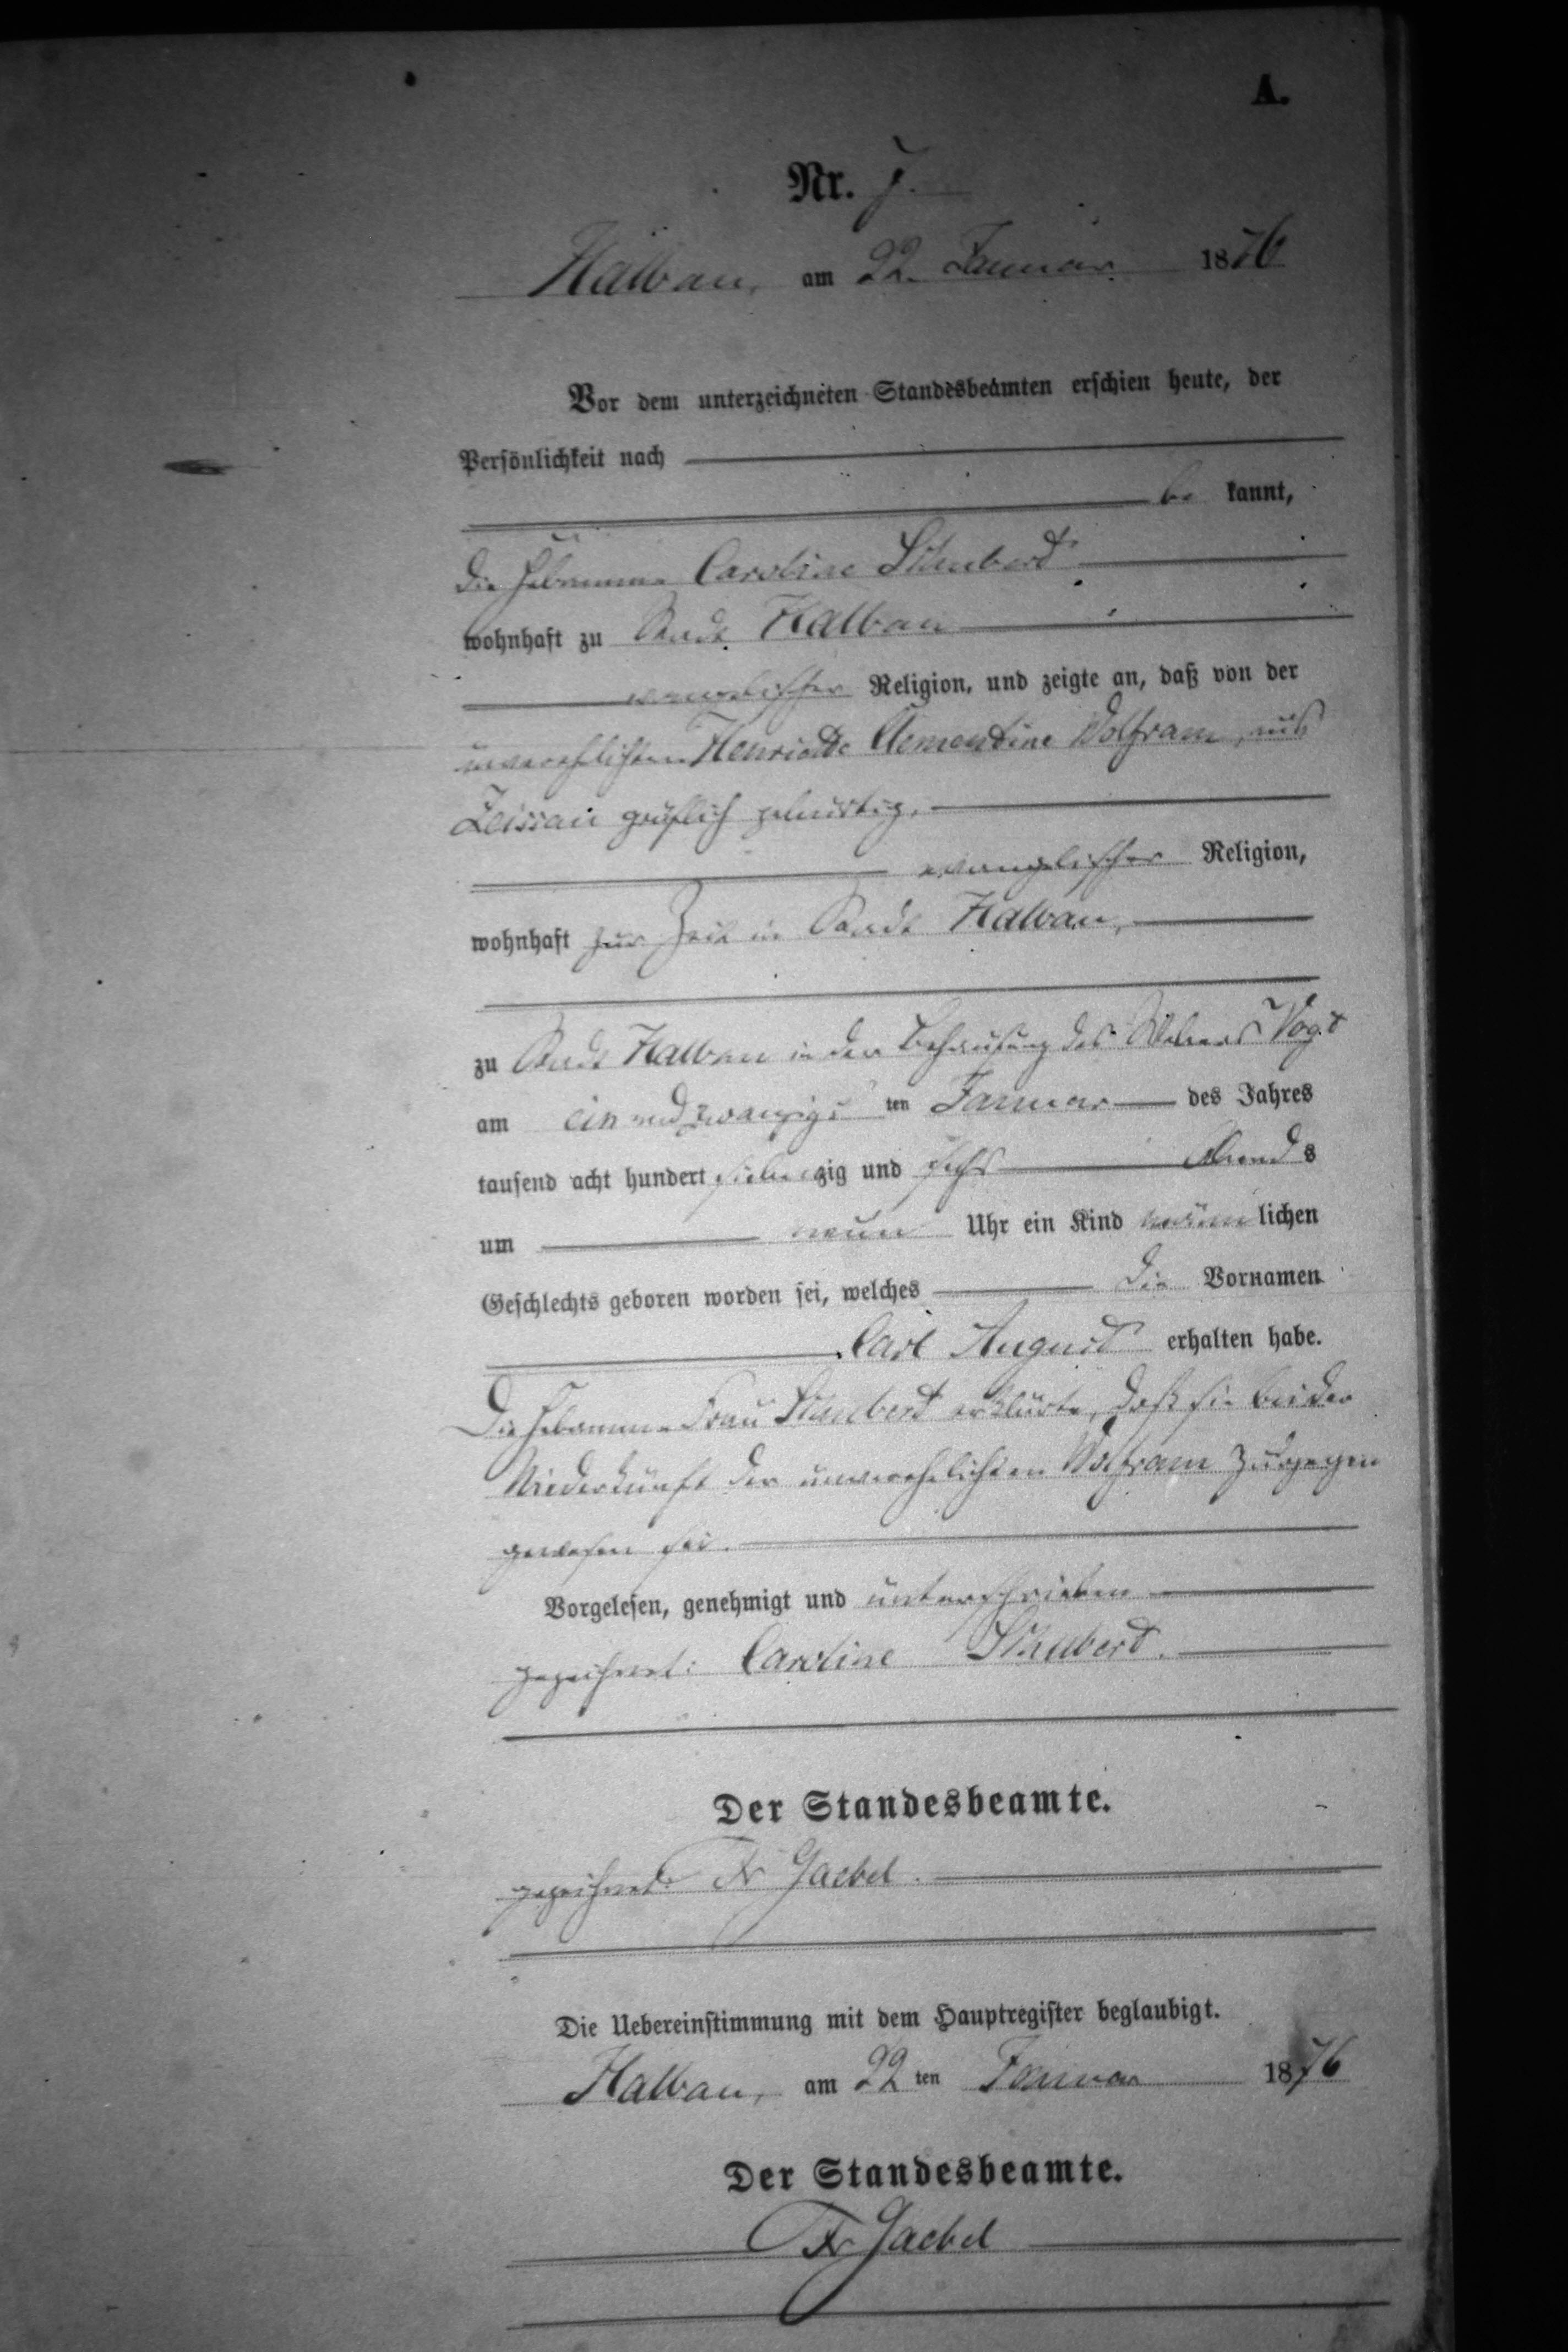 A.
Nr. 7.
Halbau, am 22. Januar 1876
Vor dem unterzeichneten Standesbeamten erschien heute, der
Persönlichkeit nach
be kannt,
die Hebamme Caroline Schubert
wohnhaft zu Stadt Halbau
evangelischer Religion, und zeigte an, daß von der
unverehlichten Henriette Clementine Wolfram, aus
Zeissau gräflich gebürtig,
evangelischer Religion,
wohnhaft zur Zeit in Stadt Halbau,
zu Stadt Halbau in der Behausung des Webers Vogt
am ein und zwanzigs ten Januar des Jahres
tausend acht hundert siebenzig und sechs Abends
um neun Uhr ein Kind männlichen
Geschlechts geboren worden sei, welches die Vornamen
Carl August erhalten habe.
Die Hebamme Frau Schubert erklärte, daß sie bei der
Niederkunft der unverehelichten Wolfram zugegen
gewesen sei.
Vorgelesen, genehmigt und unterschrieben
gezeichnet: Caroline Schubert.
Der Standesbeamte.
gezeichnet: Fr Gaebel.
Die Uebereinstimmung mit dem Hauptregister beglaubigt.
Halbau, am 22 ten Januar 1876
Der Standesbeamte.
Fr Gaebel